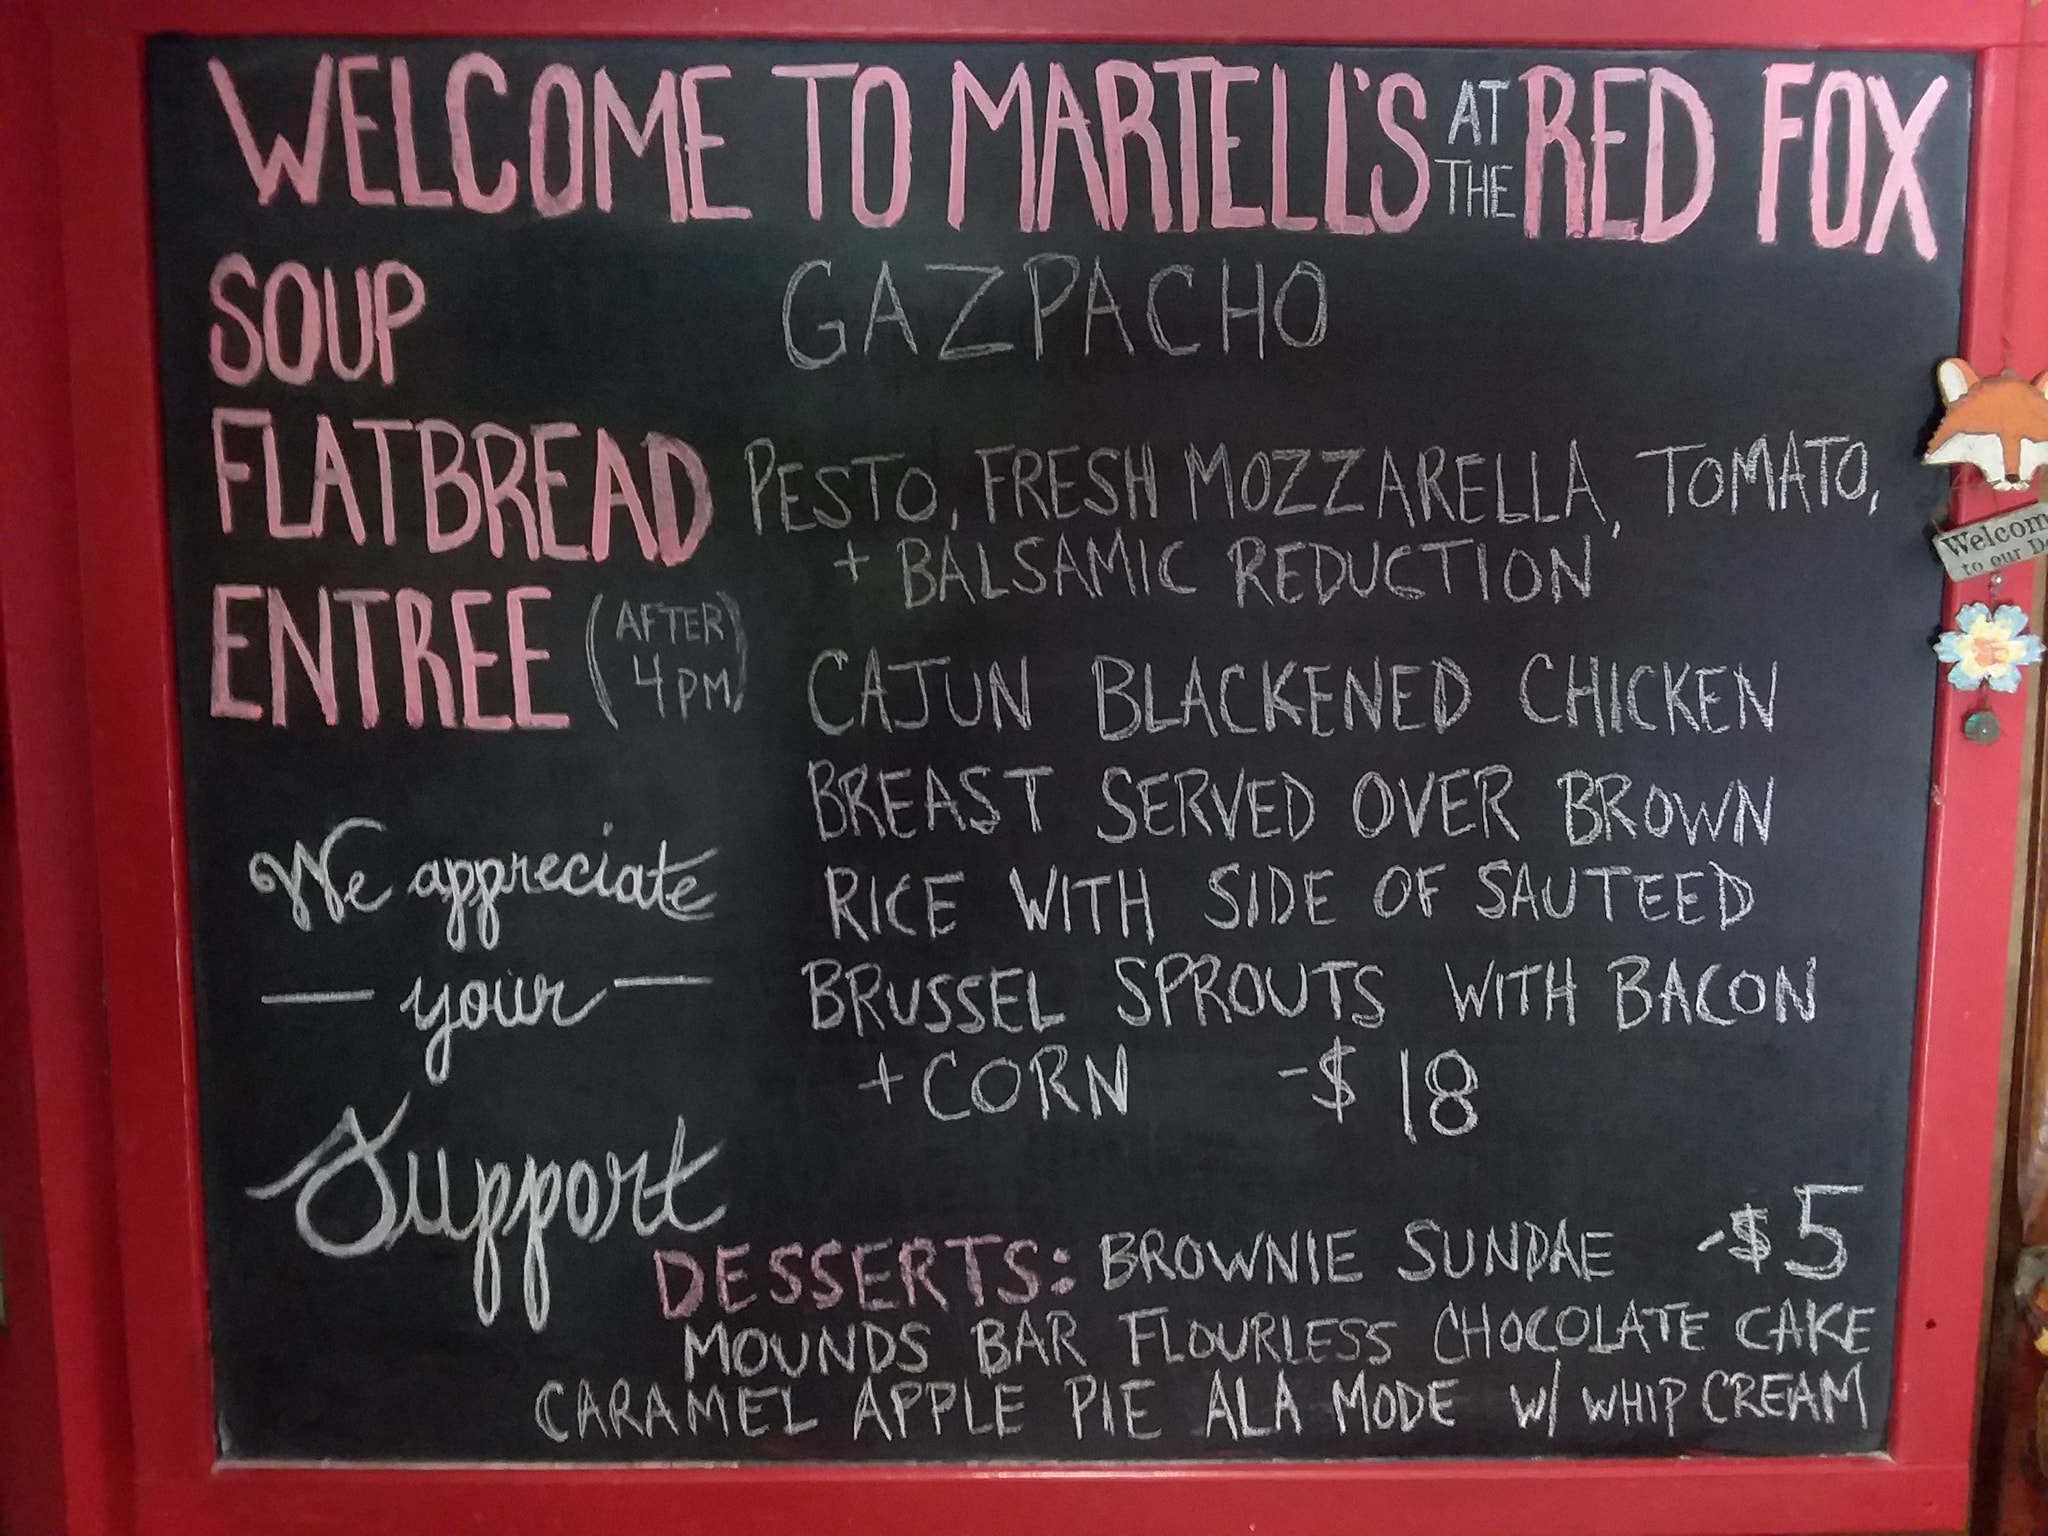 WELCOME TO MARTELL'S AT THE RED FOX
SOUP GAZPACHO
FLATBREAD PESTO, FRESH MOZZARELLA, TOMATO,
+ BALSAMIC REDUCTION
ENTREE (AFTER 4PM) CAJUN BLACKENED CHICKEN
BREAST SERVED OVER BROWN
RICE WITH SIDE OF SAUTEED
BRUSSEL SPROUTS WITH BACON
+ CORN -$18
We appreciate
— your —
Support
DESSERTS: BROWNIE SUNDAE -$5
MOUNDS BAR FLOURLESS CHOCOLATE CAKE
CARAMEL APPLE PIE ALA MODE W/ WHIP CREAM
Welcom
to our